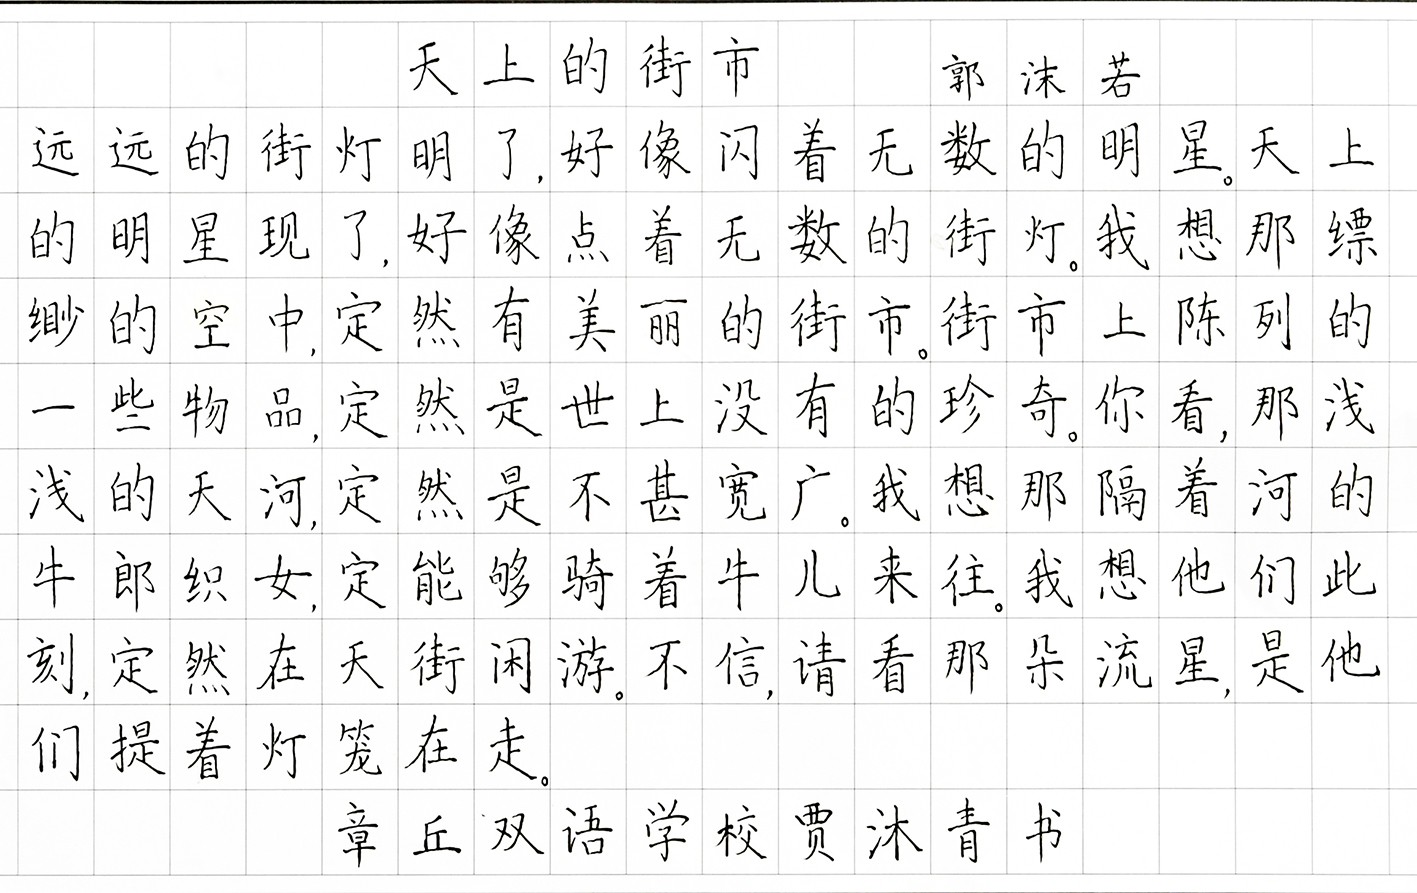 天上的街市 郭沫若
远远的街灯明了,好像闪着无数的明星。天上
的明星现了,好像点着无数的街灯。我想那缥
缈的空中,定然有美丽的街市。街市上陈列的
一些物品,定然是世上没有的珍奇。你看,那浅
浅的天河,定然是不甚宽广。我想那隔着河的
牛郎织女,定能够骑着牛儿来往。我想他们此
刻,定然在天街闲游。不信,请看那朵流星,是他
们提着灯笼在走。
章丘双语学校贾沐青书